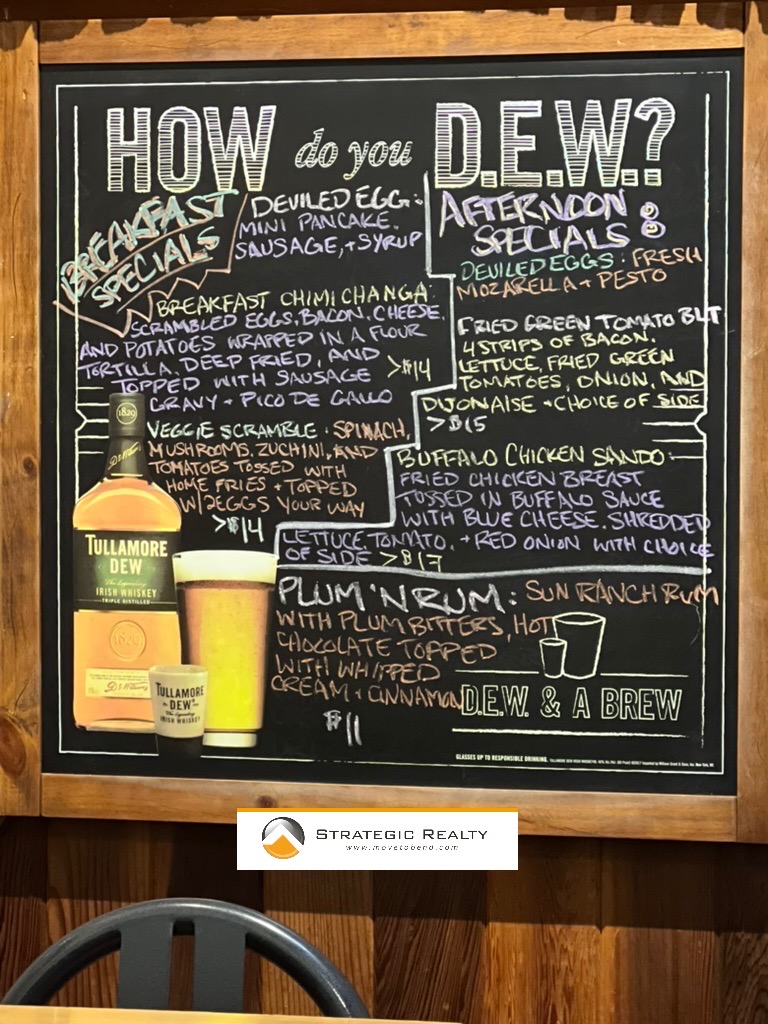 HOW do you D.E.W.?
BREAKFAST
SPECIALS
DEVILED EGG:
MINI PANCAKE,
SAUSAGE, + SYRUP
BREAKFAST CHIMICHANGA:
SCRAMBLED EGGS, BACON, CHEESE,
AND POTATOES WRAPPED IN A FLOUR
TORTILLA. DEEP FRIED, AND
TOPPED WITH SAUSAGE
GRAVY + PICO DE GALLO
>$14
VEGGIE SCRAMBLE: SPINACH,
MUSHROOMS, ZUCHINI, AND
TOMATOES TOSSED WITH
HOME FRIES + TOPPED
W/ 2 EGGS YOUR WAY
>$14
AFTERNOON
SPECIALS:
DEVILED EGGS: FRESH
MOZARELLA + PESTO
FRIED GREEN TOMATO BLT
4 STRIPS OF BACON,
LETTUCE, FRIED GREEN
TOMATOES, ONION, AND
DIJONAISE + CHOICE OF SIDE
>$15
BUFFALO CHICKEN SANDO:
FRIED CHICKEN BREAST
TOSSED IN BUFFALO SAUCE
WITH BLUE CHEESE. SHREDDED
LETTUCE, TOMATO, + RED ONION WITH CHOICE
OF SIDE >$17
PLUM 'N RUM: SUN RANCH RUM
WITH PLUM BITTERS, HOT
CHOCOLATE TOPPED
WITH WHIPPED
CREAM + CINNAMON
$11
D.E.W. & A BREW
1829
TULLAMORE
DEW
The Legendary
IRISH WHISKEY
TRIPLE DISTILLED
TULLAMORE
DEW
The Legendary
IRISH WHISKEY
GLASSES UP TO RESPONSIBLE DRINKING.
STRATEGIC REALTY
www.movetobend.com